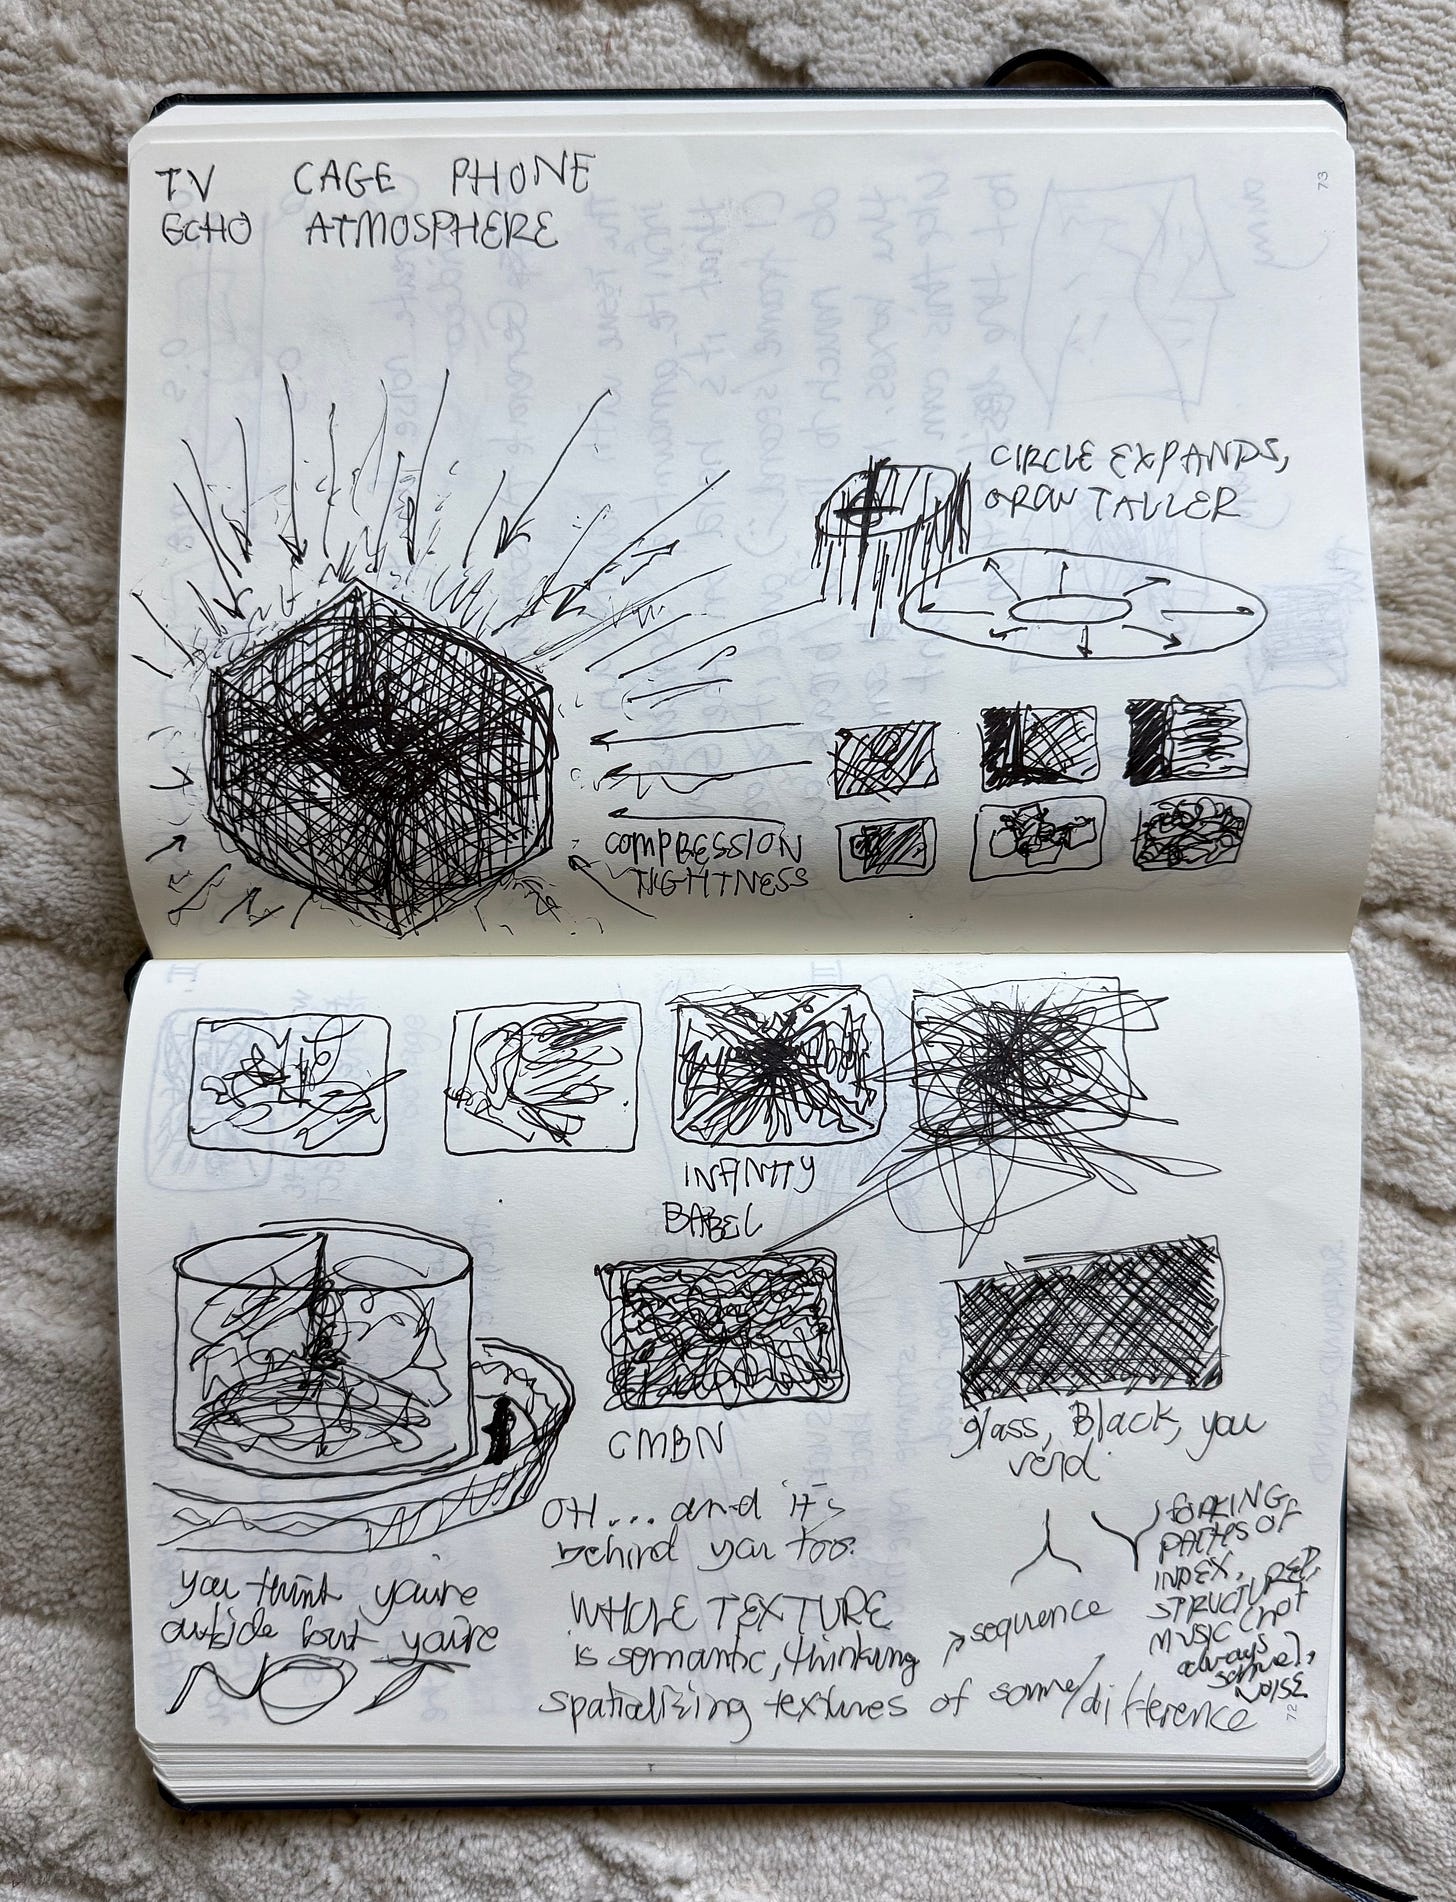 TV CAGE PHONE
ECHO ATMOSPHERE
73
CIRCLE EXPANDS,
GROW TALLER
COMPRESSION
TIGHTNESS
INFINITY
BABEL
CMBN
glass, Black, you
void
OH... and it's
behind you too.
you think you're
outside but you're
NOT
WHOLE TEXTURE
is semantic, thinking
spatializing textures of same/difference
sequence
FORKING
PATHS OF
INDEX,
STRUCTURED,
MUSIC (not
always
same),
NOISE
72